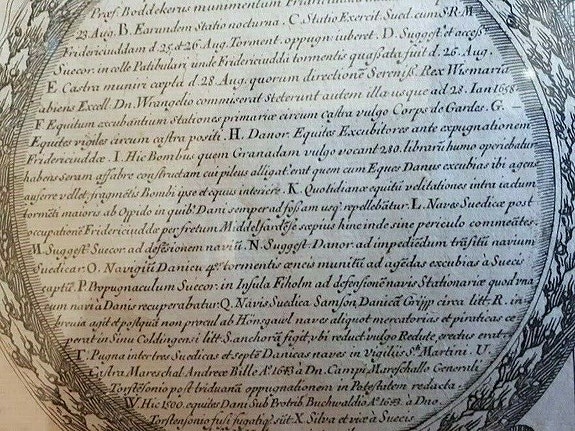 Præf. Boddekerus munimentum
23 Aug. B. Earundem Statio nocturna. C. Statio Exercit. Sued. cum S. R. M.
Fridericiuddam d. 25 et 26 Aug. Torment. oppugn: iuberet. D. Suggest. et access.
Suecor. in colle Patibulari, unde Fridericiudda tormentis quassata fuit d. 26 Aug.
E Castra muniri cæpta d. 28 Aug. quorum directionē Sereniss. Rex Wismaria
abiens Excell. Dn. Wrangelio commiserat Steterunt autem illa usque ad 28. Ian 1658
F Equitum excubantium Stationes primariæ circum castra vulgo Corps de Gardes. G.
Equites vigiles circum castra positi. H. Danor. Equites Excubitores ante expugnationem
Fridericiuddæ. I. Hic Bombus quem Granadam vulgo vocant 280. librarū humo operiebatur
habens seram affabre constructam cui pileus alligat. erat quem cum Eques Danus excubias ibi agens
auferre vellet, fragmētis Bombi ipse et equus interiere. K. Quotidianæ equitū velitationes intra iactum
tormēti maioris ab Oppido in quib. Dani semper ad fossam usq. repellebātur. L. Naves Suedicæ post
occupationē Fridericiuddæ per fretum Middelfardēse sæpius hinc inde sine periculo commeātes.
M. Suggest. Suecor ad defēsionem naviū. N. Suggest. Danor. ad impediēdum trāsitū navium
Suedicar. O. Navigiū Danicū 4or. tormentis æneis munitū, ad agēdas excubias à Suecis
captū. P. Propugnaculum Suecor. in Insula Fiholm ad defensionē navis Stationariæ quod una
cum navi a Danis recuperabatur. Q. Navis Suedica Samson, Danicā Grijp circa litt. R. in
brevia agit et postquā non procul ab Honsgawl naves aliquot mercatorias et piraticas ce
perat in Sinu Coldingensi litt. S. anchorā figit, ubi reduct. vulgo Redute erectus erat.
T. Pugna inter tres Suedicas et septē Danicas naves in Vigiliis Sti. Martini. U.
Castra Mareschal. Andreæ Bille Ao. 1643 à Dn. Campi Mareschallo Generali
Torstēsonio post triduanā oppugnationem in Potestatem redacta.
W. Hic 1500. equites Dani Sub Protrib. Buchwaldio Ao. 1643. à Dno
Torstensonio fusi fugatiq. sūt. X. Silva et viæ à Suecis